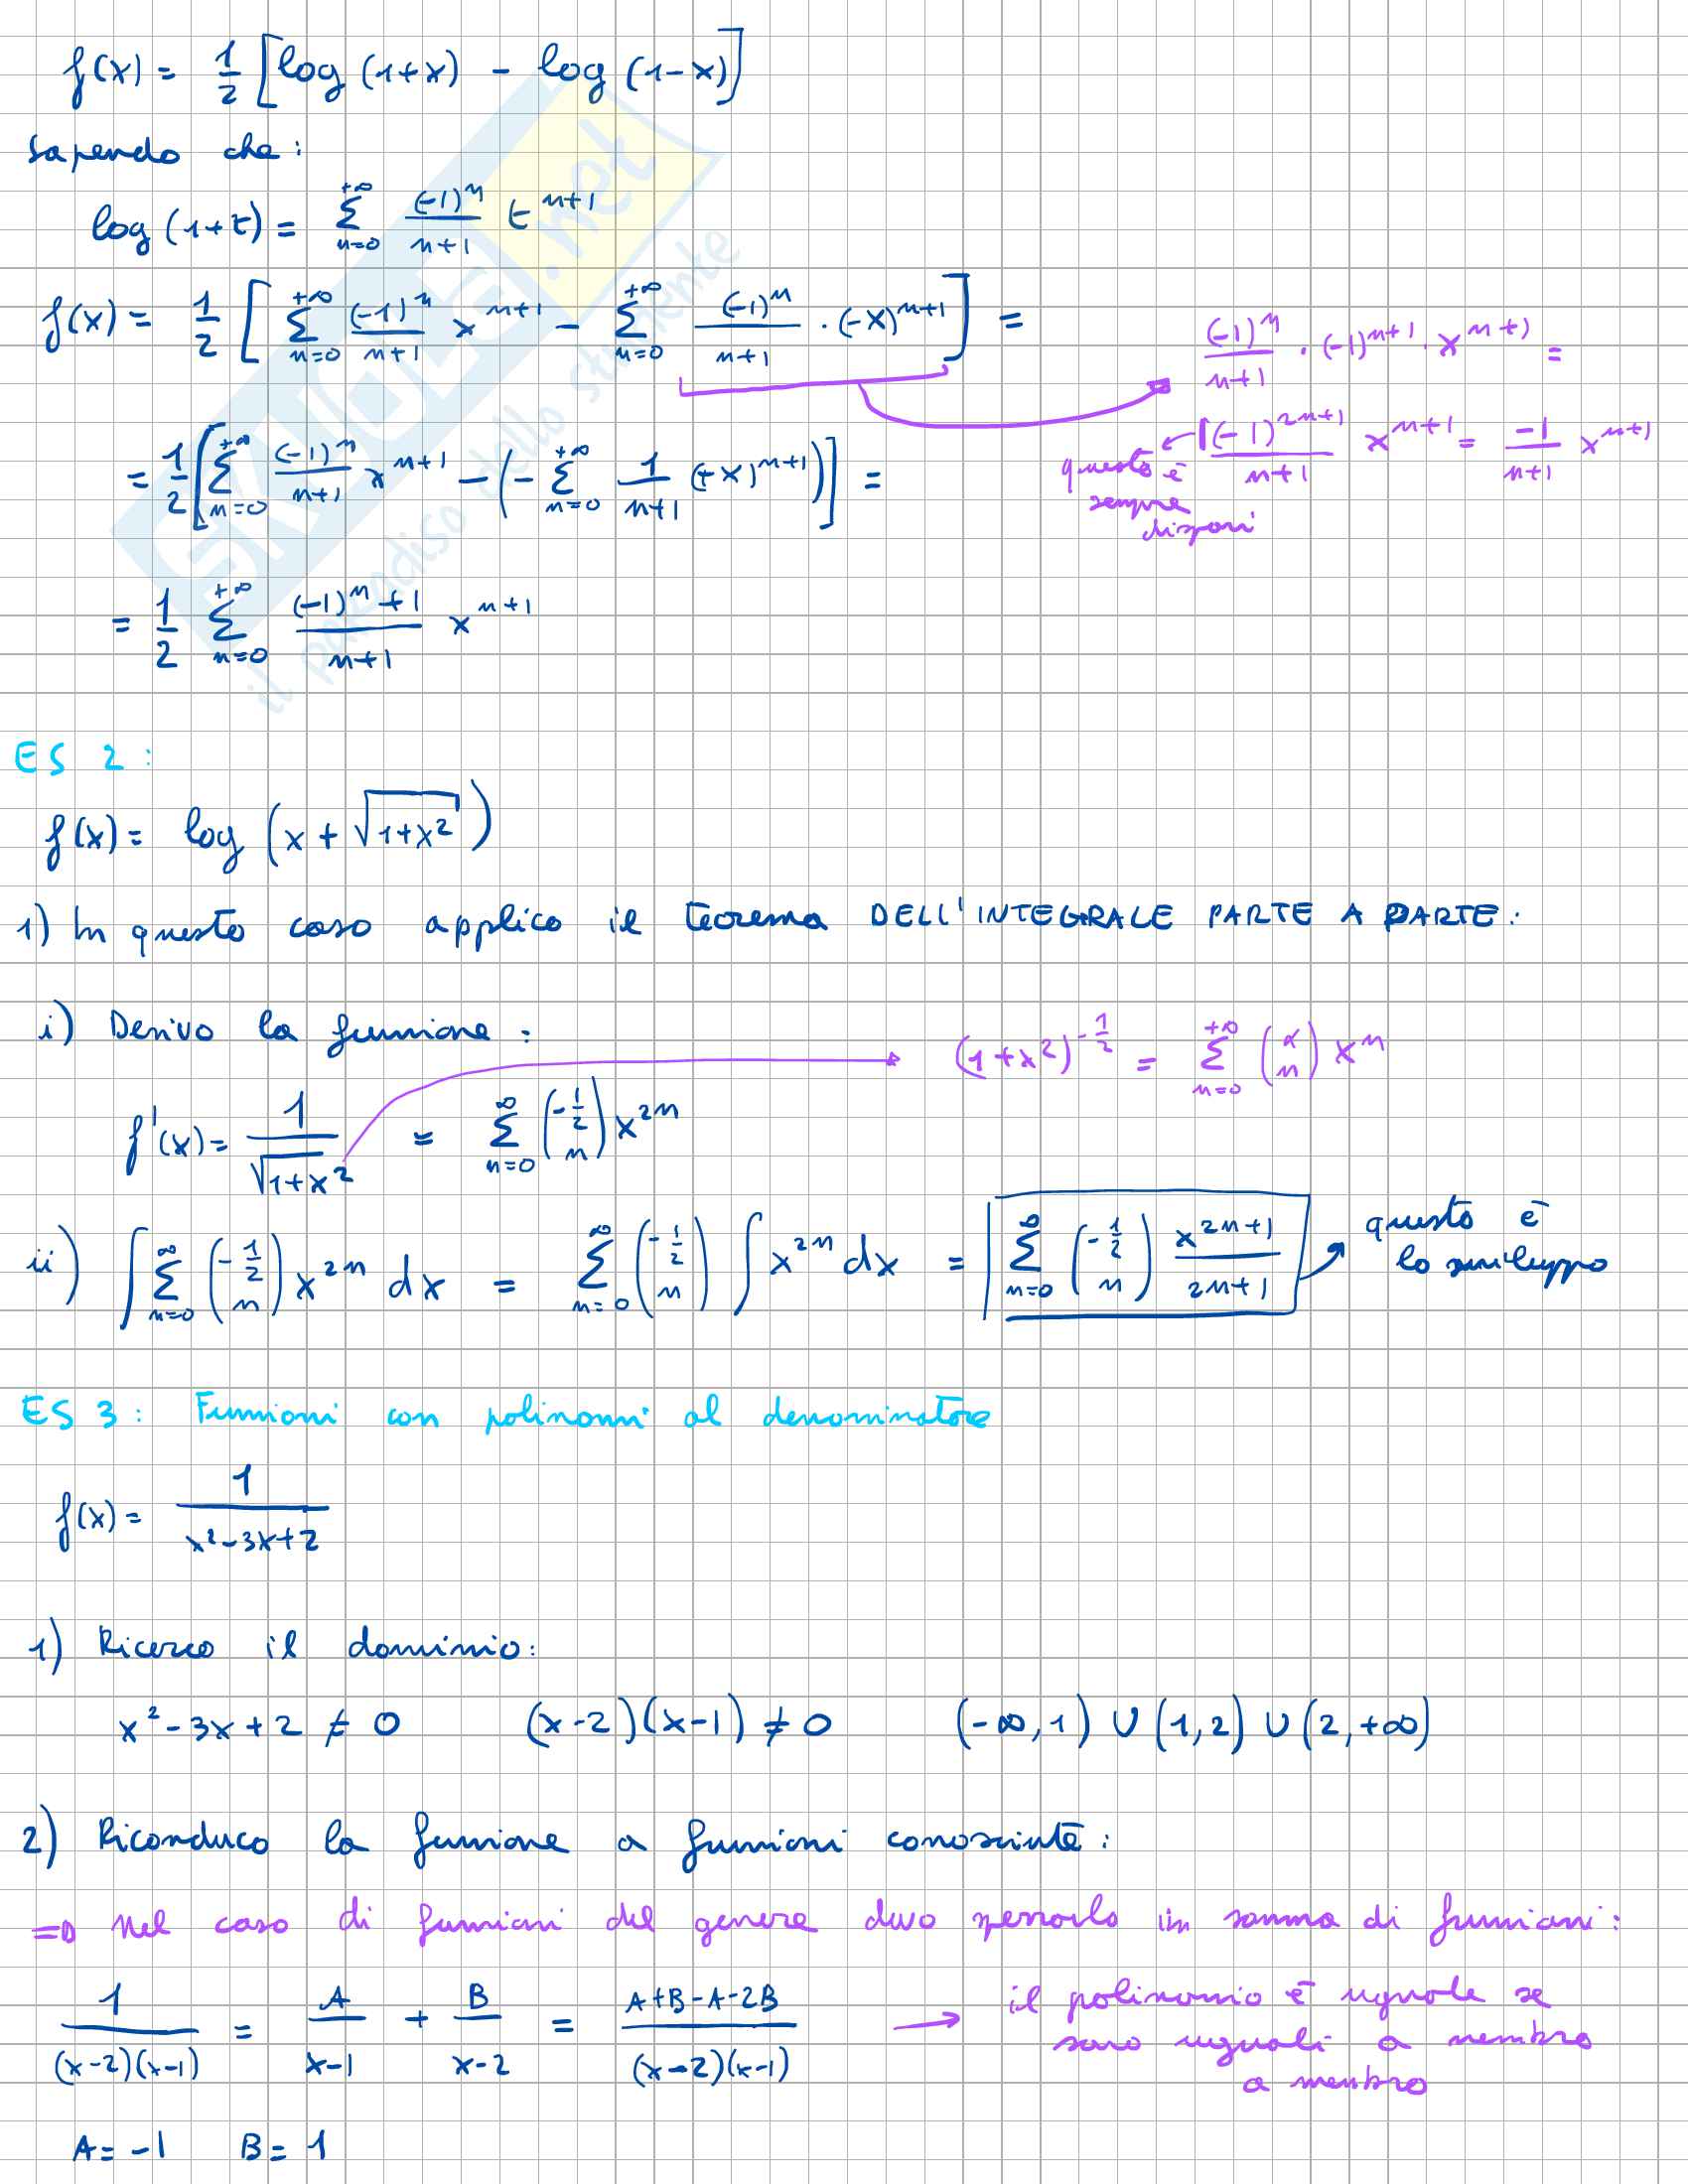 f(x) = 1/2 [log (1+x) - log (1-x)]
sapendo che:
log (1+t) = Σ_{n=0}^{+∞} (-1)^n/(n+1) t^{n+1}
f(x) = 1/2 [ Σ_{n=0}^{+∞} (-1)^n/(n+1) x^{n+1} - Σ_{n=0}^{+∞} (-1)^n/(n+1) · (-x)^{n+1} ] =
(-1)^n/(n+1) · (-1)^{n+1} · x^{n+1} =
(-1)^{2n+1}/(n+1) x^{n+1} = -1/(n+1) x^{n+1}
questo è
sempre
dispari
= 1/2 [ Σ_{n=0}^{+∞} (-1)^n/(n+1) x^{n+1} - (- Σ_{n=0}^{+∞} 1/(n+1) (+x)^{n+1}) ] =
= 1/2 Σ_{n=0}^{+∞} ((-1)^n + 1)/(n+1) x^{n+1}
SKUOLA.net
il paradiso dello studente
ES 2 :
f(x) = log (x + √(1+x²))
1) In questo caso applico il teorema DELL'INTEGRALE PARTE A PARTE:
i) Derivo la funzione :
(1+x²)^{-1/2} = Σ_{n=0}^{+∞} (α n) x^n
f'(x) = 1/√(1+x²) = Σ_{n=0}^{∞} (-1/2 n) x^{2n}
ii) ∫ Σ_{n=0}^{∞} (-1/2 n) x^{2n} dx = Σ_{n=0}^{∞} (-1/2 n) ∫ x^{2n} dx = Σ_{n=0}^{∞} (-1/2 n) x^{2n+1}/(2n+1)
questo è
lo sviluppo
ES 3 : Funzioni con polinomi al denominatore
f(x) = 1/(x²-3x+2)
1) Ricerco il dominio:
x²-3x+2 ≠ 0 (x-2)(x-1) ≠ 0 (-∞,1) ∪ (1,2) ∪ (2,+∞)
2) Riconduco la funzione a funzioni conosciute:
=> Nel caso di funzioni del genere devo spezzarlo in somma di funzioni:
1/((x-2)(x-1)) = A/(x-1) + B/(x-2) = (A+B-A-2B)/((x-2)(x-1)) →
il polinomio è uguale se
sono uguali a membro
a membro
A = -1 B = 1